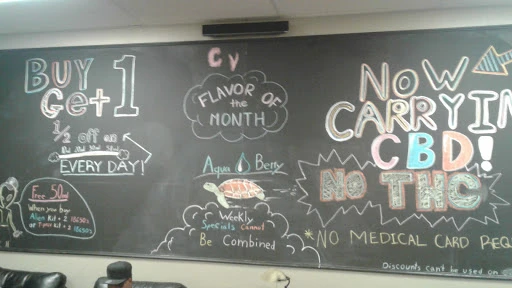 BUY
Get 1
1/2 off on
EVERY DAY!
Free 50ml
When you buy
Alien Kit + 2
or
Kit + 2
Cy
FLAVOR OF
the
MONTH
Aqua Berry
Weekly
Specials Cannot
Be Combined
NOW
CARRYIN
CBD!
No THC
*NO MEDICAL CARD REQ
Discounts can't be used on